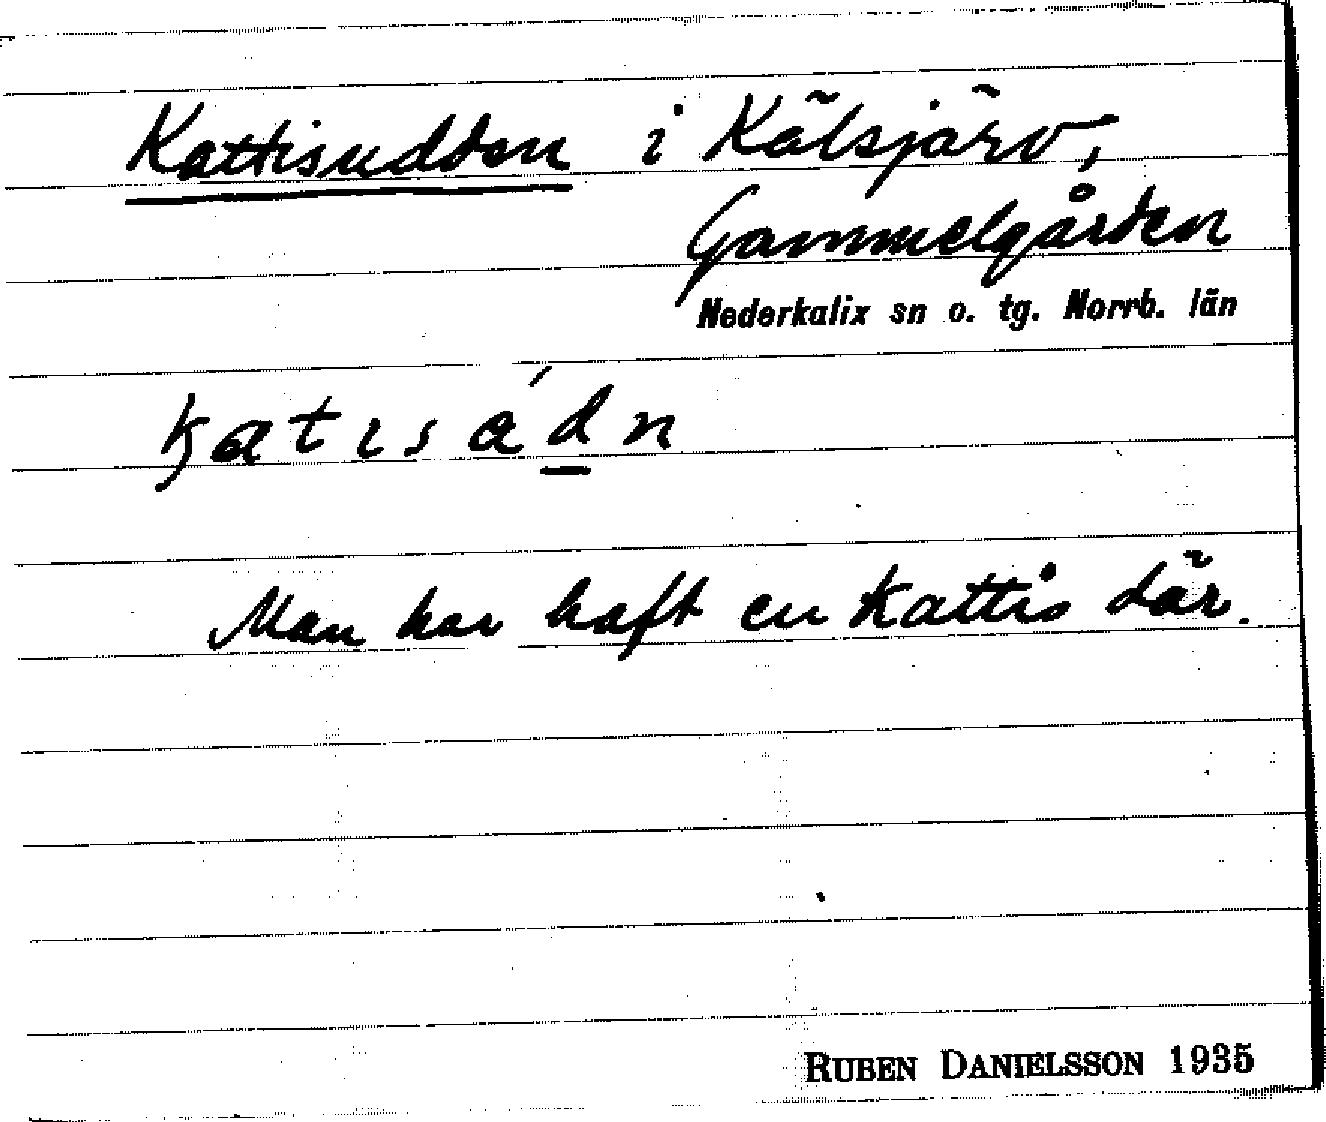 Kattisudden i Kälsjärv,
Gammelgården
Nederkalix sn o. tg. Norrb. län
katısád̲n
Man har haft en kattis där.
RUBEN DANIELSSON 1935